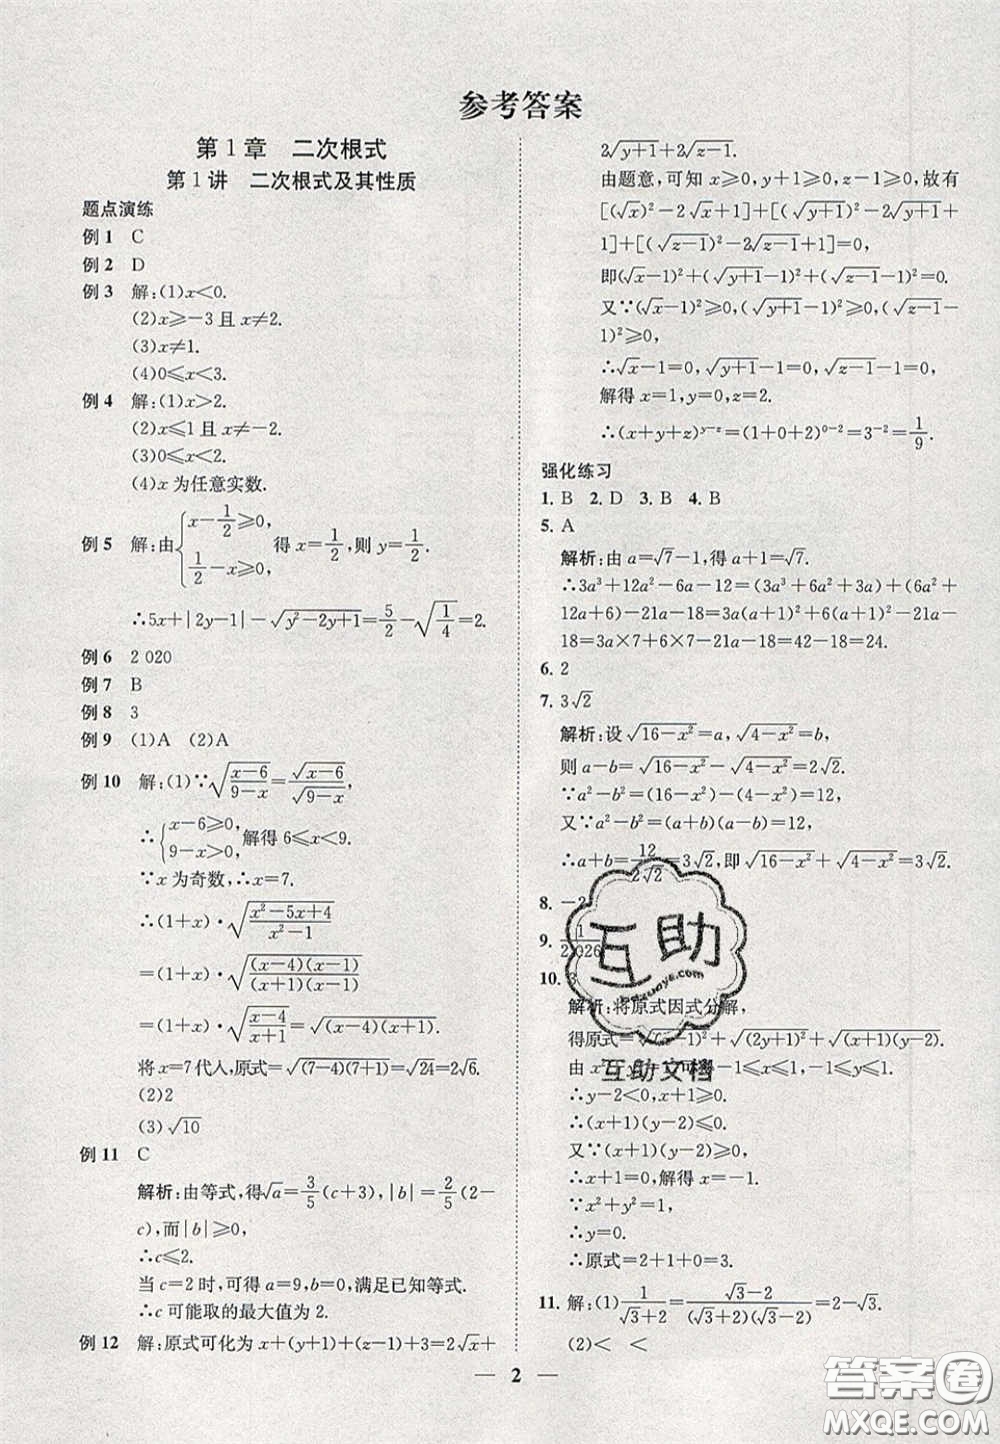 参考答案
第1章 二次根式
第1讲 二次根式及其性质
题点演练
例1 C
例2 D
例3 解:(1)x<0.
(2)x≥-3且x≠2.
(3)x≠1.
(4)0≤x<3.
例4 解:(1)x>2.
(2)x≤1且x≠-2.
(3)0≤x<2.
(4)x为任意实数.
例5 解:由{x-1/2≥0, 1/2-x≥0, 得x=1/2,则y=1/2.
∴5x+|2y-1|-√(y²-2y+1)=5/2-√(1/4)=2.
例6 2 020
例7 B
例8 3
例9 (1)A (2)A
例10 解:(1)∵√((x-6)/(9-x))=√(x-6)/√(9-x),
∴{x-6≥0, 9-x>0, 解得6≤x<9.
∵x为奇数,∴x=7.
∴(1+x)·√((x²-5x+4)/(x²-1))
=(1+x)·√((x-4)(x-1)/(x+1)(x-1))
=(1+x)·√((x-4)/(x+1))=√((x-4)(x+1)).
将x=7代人,原式=√((7-4)(7+1))=√24=2√6.
(2)2
(3)√10
例11 C
解析:由等式,得√a=3/5(c+3),|b|=2/5(2-
c),而|b|≥0,
∴c≤2.
当c=2时,可得a=9,b=0,满足已知等式.
∴c可能取的最大值为2.
例12 解:原式可化为x+(y+1)+(z-1)+3=2√x+
2√(y+1)+2√(z-1).
由题意,可知x≥0,y+1≥0,z-1≥0,故有
[(√x)²-2√x+1]+[(√(y+1))²-2√(y+1)+
1]+[(√(z-1))²-2√(z-1)+1]=0,
即(√x-1)²+(√(y+1)-1)²+(√(z-1)-1)²=0.
又∵(√x-1)²≥0,(√(y+1)-1)²≥0,(√(z-1)-
1)²≥0,
∴√x-1=0,√(y+1)-1=0,√(z-1)-1=0,
解得x=1,y=0,z=2.
∴(x+y+z)^(y-z)=(1+0+2)^(0-2)=3^(-2)=1/9.
强化练习
1. B 2. D 3. B 4. B
5. A
解析:由a=√7-1,得a+1=√7.
∴3a³+12a²-6a-12=(3a³+6a²+3a)+(6a²+
12a+6)-21a-18=3a(a+1)²+6(a+1)²-21a-
18=3a×7+6×7-21a-18=42-18=24.
6. 2
7. 3√2
解析:设√(16-x²)=a,√(4-x²)=b,
则a-b=√(16-x²)-√(4-x²)=2√2.
∵a²-b²=(16-x²)-(4-x²)=12,
又∵a²-b²=(a+b)(a-b)=12,
∴a+b=12/(2√2)=3√2,即√(16-x²)+√(4-x²)=3√2.
8. -2
9. 1/2 026
10. 3
解析:将原式因式分解,
得原式=√((x-2)²)+√((2y+1)²)+√((x+1)(y-2)).
由x²+y²=1,可得-1≤x≤1,-1≤y≤1.
∴y-2<0,x+1≥0.
∴(x+1)(y-2)≤0.
又∵(x+1)(y-2)≥0,
∴x+1=0,x=-1.
∵x²+y²=1,
∴y=0.
∴原式=2+1+0=3.
11. 解:(1)1/(√3+2)=(√3-2)/((√3+2)(√3-2))=2-√3.
(2)< <
2
互助
互助文档
答案圈
MXQE.COM